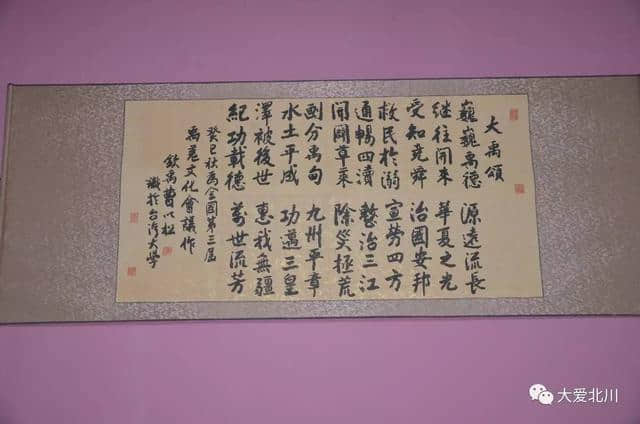 大禹頌
巍巍禹德 源遠流長
继往開来 華夏之光
受知堯舜 治國安邦
救民於溺 宣勞四方
通暢四瀆 整治三江
開闢草萊 除災拯荒
劃分禹甸 九州平章
水土平成 功邁三皇
澤被後世 惠我無疆
紀功載德 萬世流芳
癸巳秋為全國第三屆
禹羌文化會議作
欽禹曹以松
識於台湾大學
大爱北川